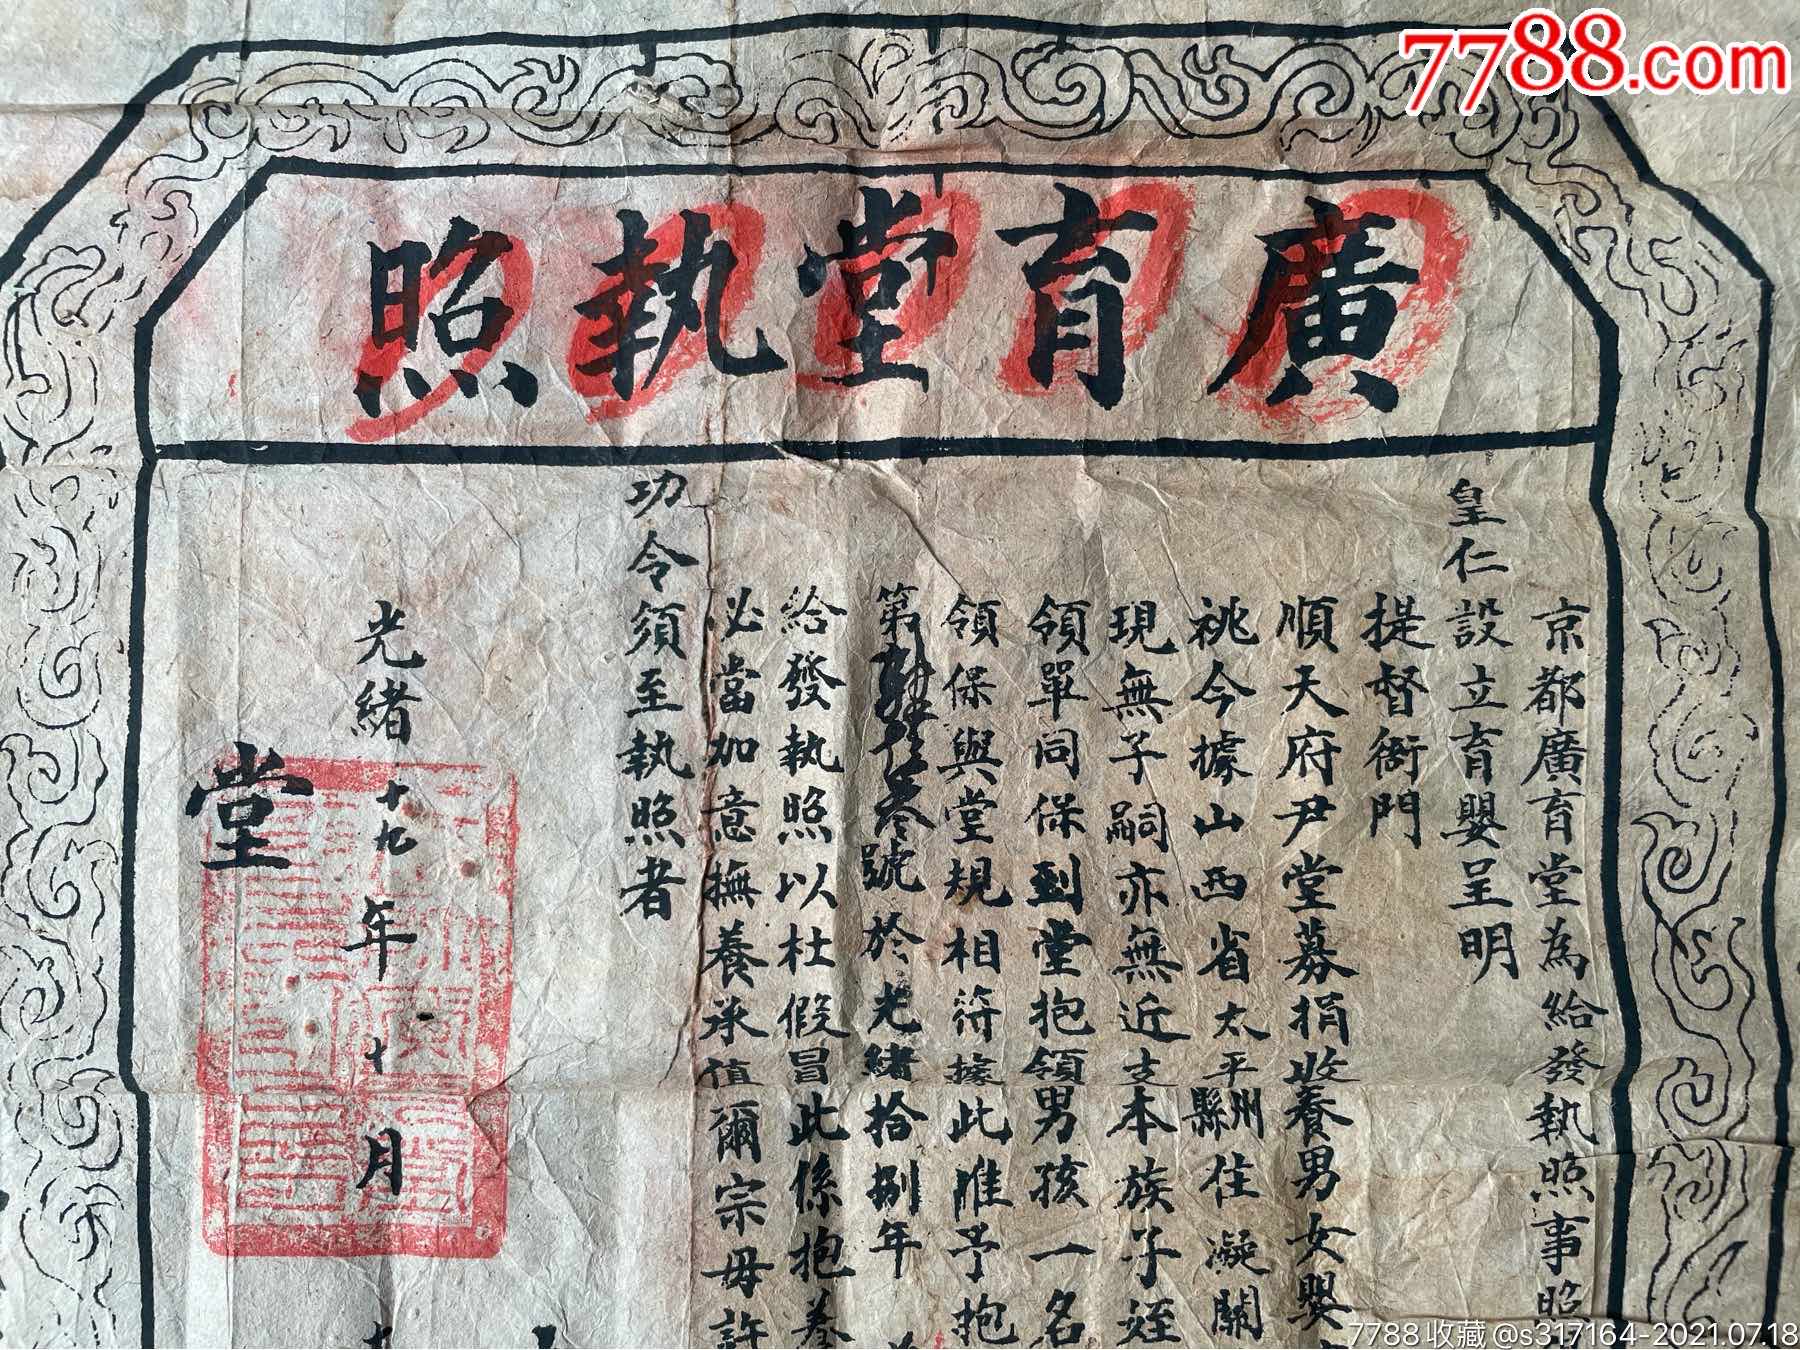 廣育堂執照
京都廣育堂為給發執照事照
皇仁設立育嬰呈明
提督衙門
順天府尹堂募捐收養男女嬰
祧今據山西省太平州縣住凝關
現無子嗣亦無近支本族子姪
領單同保到堂抱領男孩一名
領保與堂規相符據此准予抱
第 叁號於光緒拾捌年
給發執照以杜假冒此係抱養
必當加意撫養承值爾宗毋許
功令須至執照者
光緒十九年十一月
堂
7788.com
7788收藏@s317164-2021.07.18